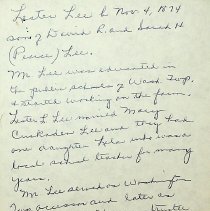 Lester Lee b Nov 4, 1874
son of David R. and Sarah H
(Pearce) Lee.
Mr Lee was educated in
the public schools of Wash Twp.
& started working on the farm.
Lester L married Mary
Lee and they had
one daughter Lola who was a
local school teacher for many
years.
Mr Lee served as Washington
Twp assessor and later as
trustee